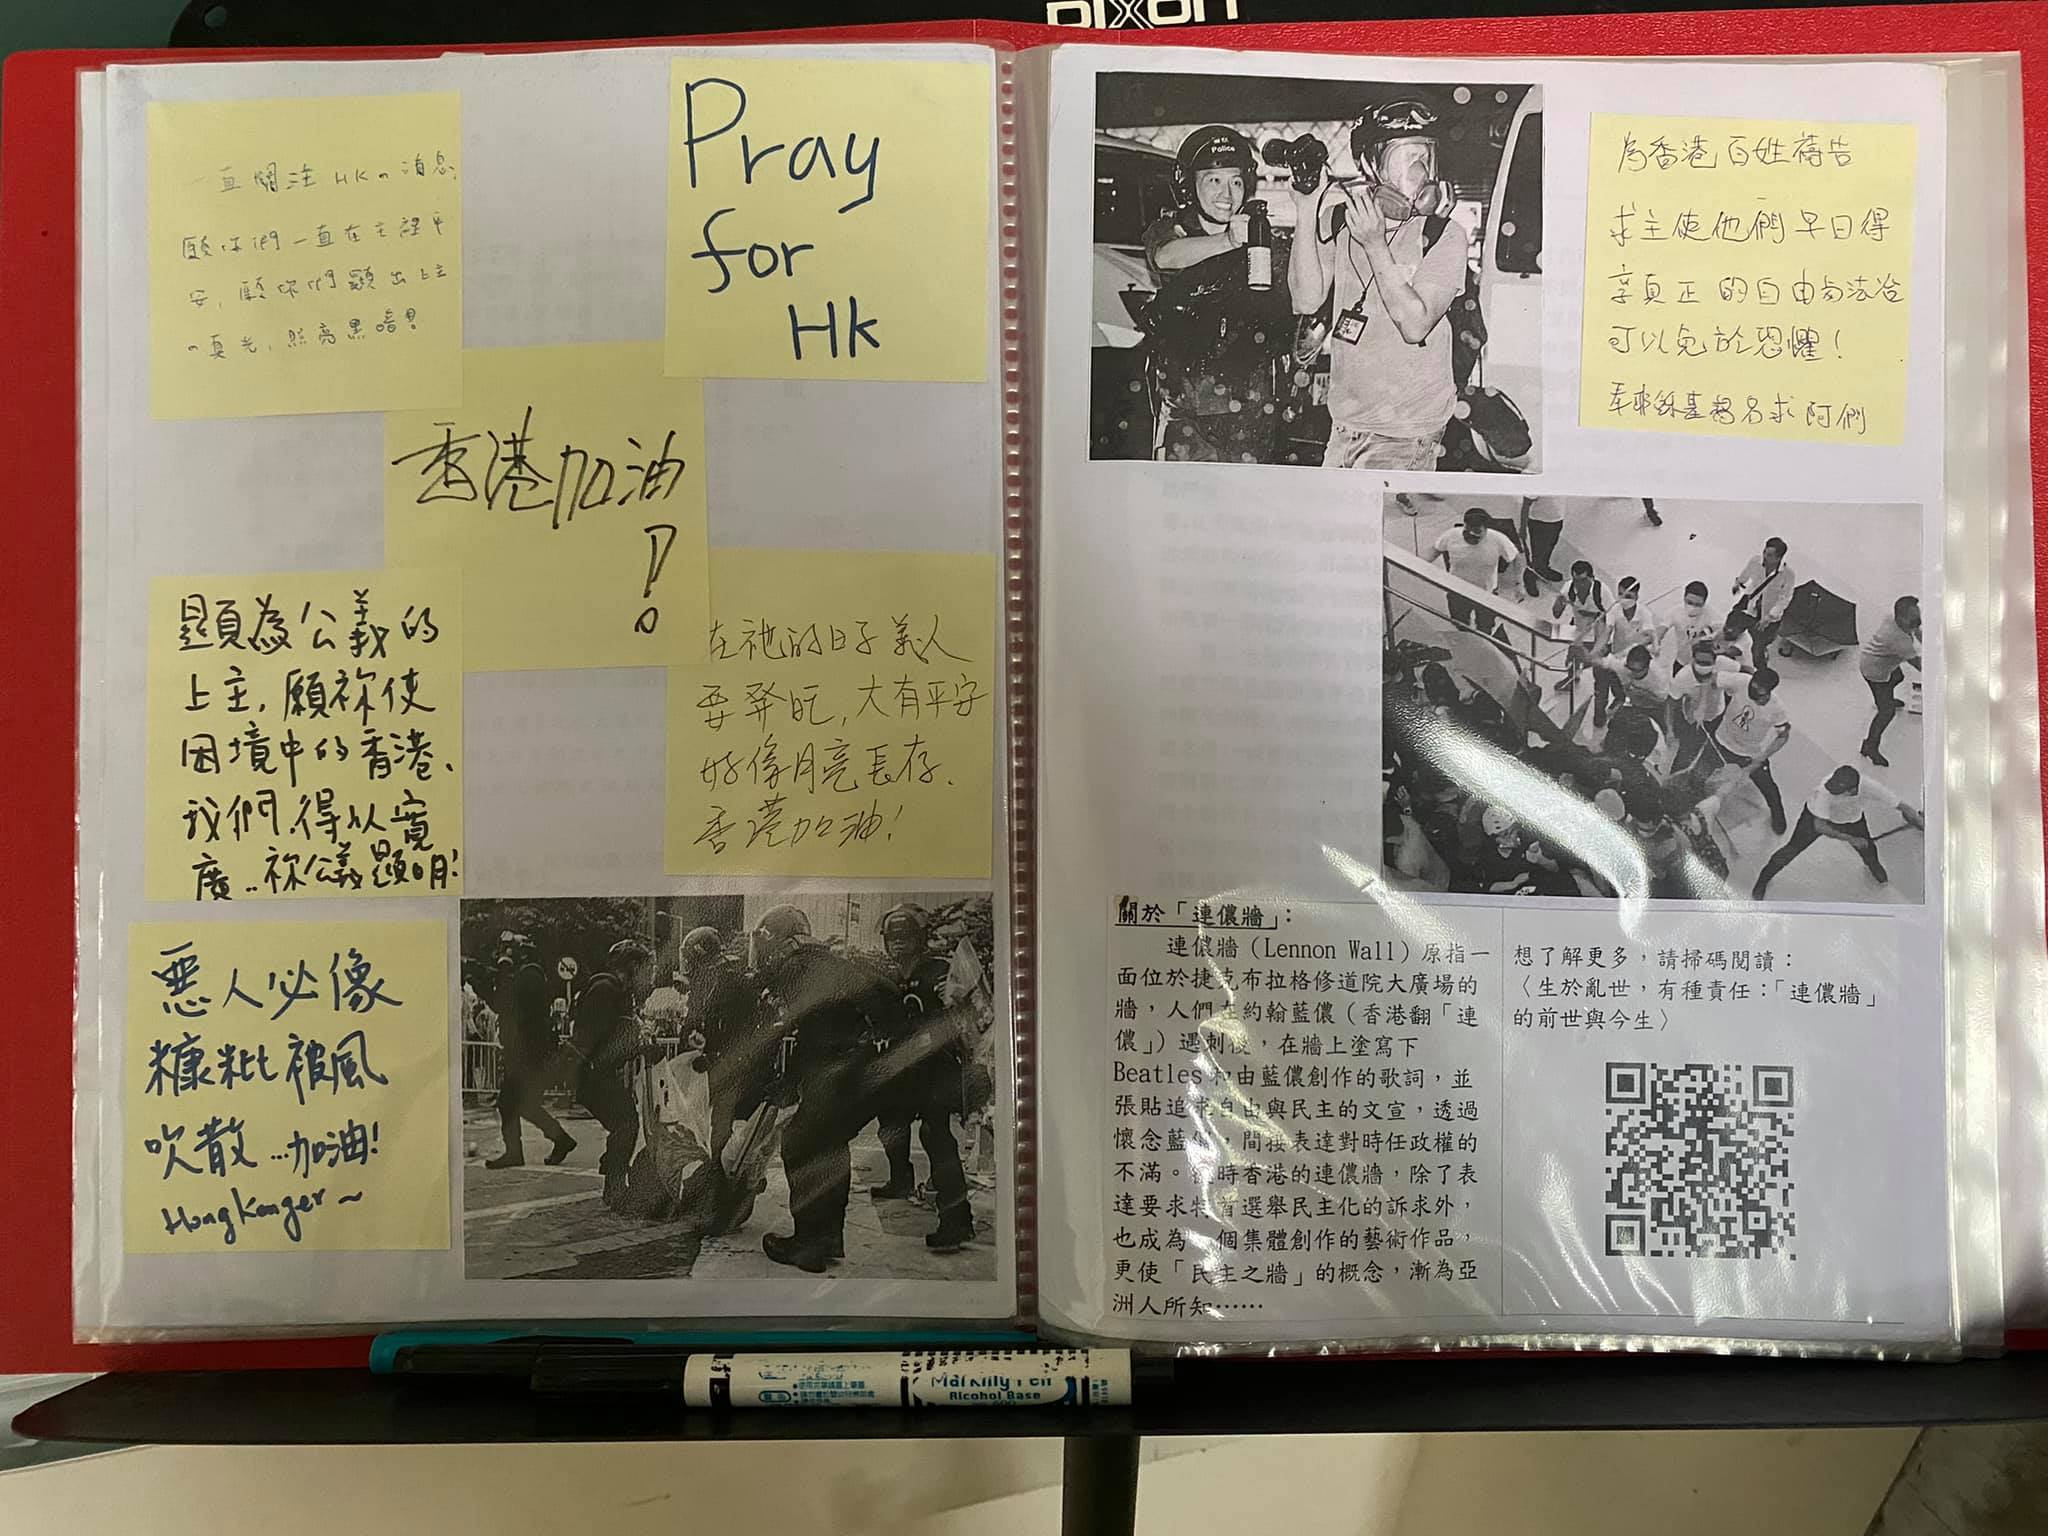 DIXON
一直關注 HK の 消息,
願你們一直在主裡平
安, 願你們顯出上主
の真光, 照亮黑暗!
Pray
for
Hk
香港加油
!
顯為公義的
上主, 願祢使
困境中的香港、
我們, 得以寬
廣..祢公義顯明!
在祂的日子義人
要發旺, 大有平安
好像月亮長存.
香港加油!
惡人必像
糠粃被風
吹散...加油!
HongKonger~
Police
為香港百姓禱告
求主使他們早日得
享真正的自由与法治
可以免於恐懼!
奉耶穌基督名求 阿們
關於「連儂牆」:
連儂牆(Lennon Wall)原指一
面位於捷克布拉格修道院大廣場的
牆,人們在約翰藍儂(香港翻「連
儂」)遇刺後,在牆上塗寫下
Beatles和由藍儂創作的歌詞,並
張貼追求自由與民主的文宣,透過
懷念藍儂,間接表達對時任政權的
不滿。 時香港的連儂牆,除了表
達要求特首選舉民主化的訴求外,
也成為一個集體創作的藝術作品,
更使「民主之牆」的概念,漸為亞
洲人所知……
想了解更多,請掃碼閱讀:
〈生於亂世,有種責任:「連儂牆」
的前世與今生〉
Marking Pen
Alcohol Base